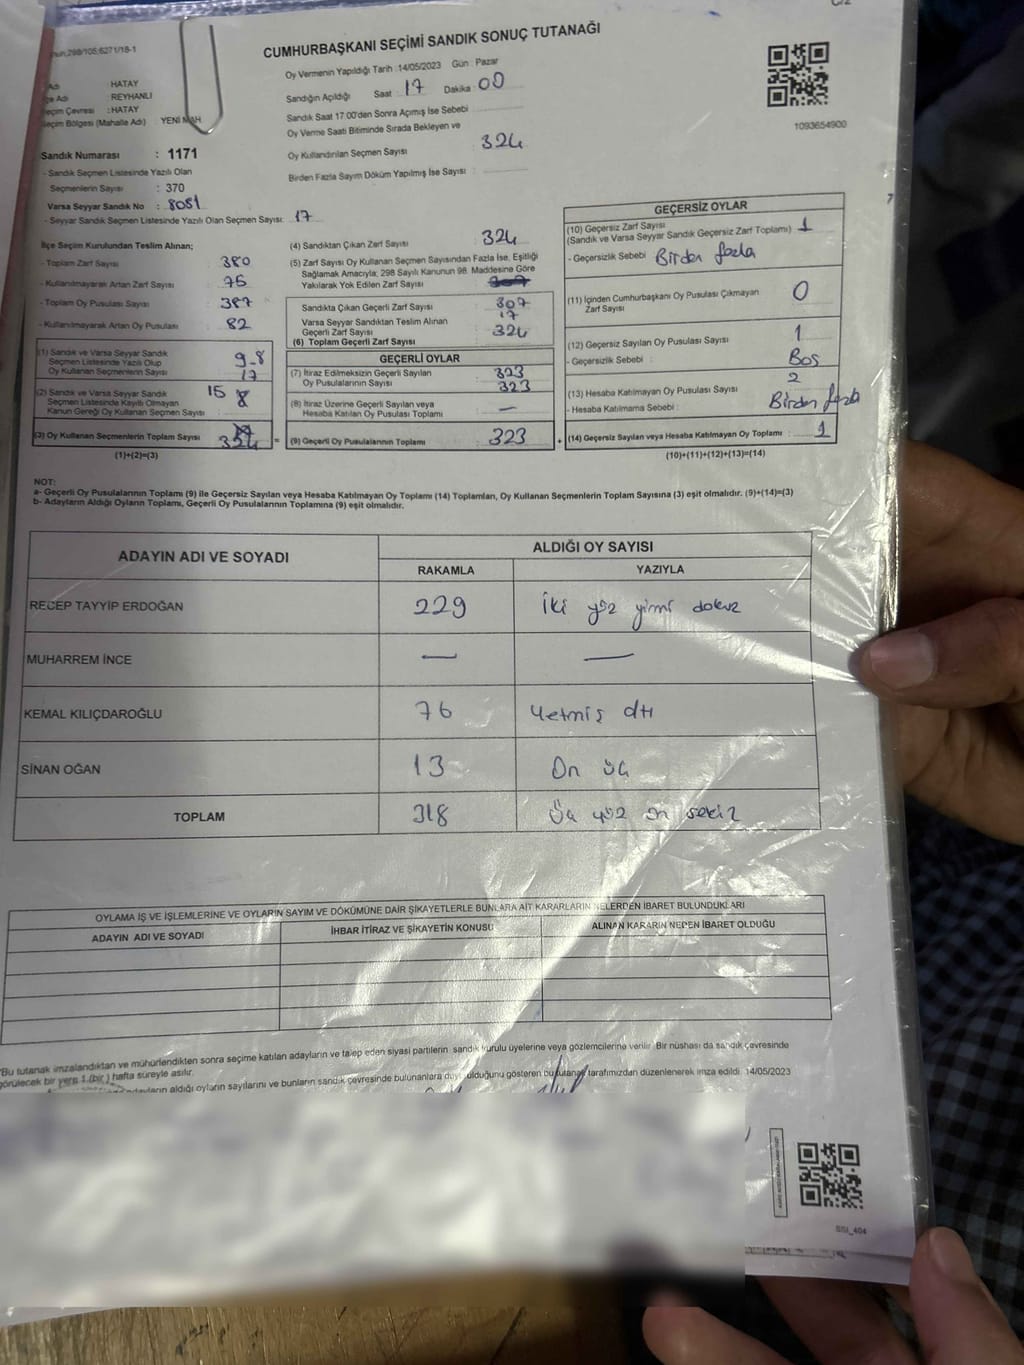 CUMHURBAŞKANI SEÇİMİ SANDIK SONUÇ TUTANAĞI
298/105;6271/18-1
Adı : HATAY
Adı : REYHANLI
Seçim Çevresi : HATAY
Seçim Bölgesi (Mahalle Adı) YENİ MAH
Sandık Numarası : 1171
- Sandık Seçmen Listesinde Yazılı Olan
Seçmenlerin Sayısı : 370
Varsa Seyyar Sandık No : 8051
- Seyyar Sandık Seçmen Listesinde Yazılı Olan Seçmen Sayısı: 17
Oy Vermenin Yapıldığı Tarih : 14/05/2023 Gün : Pazar
Sandığın Açıldığı Saat : 17 Dakika : 00
Sandık Saat 17:00'den Sonra Açımış İse Sebebi
Oy Verme Saati Bitiminde Sırada Bekleyen ve
Oy Kullandırılan Seçmen Sayısı : 324
Birden Fazla Sayım Döküm Yapılmış İse Sayısı :
1093654900
İlçe Seçim Kurulundan Teslim Alınan;
- Toplam Zarf Sayısı : 380
- Kullanılmayarak Artan Zarf Sayısı : 75
- Toplam Oy Pusulası Sayısı : 387
- Kullanılmayarak Artan Oy Pusulası : 82
(1) Sandık ve Varsa Seyyar Sandık
Seçmen Listesinde Yazılı Olup
Oy Kullanan Seçmenlerin Sayısı : 17
(2) Sandık ve Varsa Seyyar Sandık
Seçmen Listesinde Kayıtlı Olmayan
Kanun Gereği Oy Kullanan Seçmen Sayısı : 15
(3) Oy Kullanan Seçmenlerin Toplam Sayısı =
(1)+(2)=(3)
(4) Sandıktan Çıkan Zarf Sayısı : 324
(5) Zarf Sayısı Oy Kullanan Seçmen Sayısından Fazla İse, Eşitliği
Sağlamak Amacıyla; 298 Sayılı Kanunun 98. Maddesine Göre
Yakılarak Yok Edilen Zarf Sayısı :
Sandıkta Çıkan Geçerli Zarf Sayısı : 307
Varsa Seyyar Sandıktan Teslim Alınan
Geçerli Zarf Sayısı : 17
(6) Toplam Geçerli Zarf Sayısı : 324
GEÇERLİ OYLAR
(7) İtiraz Edilmeksizin Geçerli Sayılan
Oy Pusulalarının Sayısı : 323
323
(8) İtiraz Üzerine Geçerli Sayılan veya
Hesaba Katılan Oy Pusulası Toplamı : —
(9) Geçerli Oy Pusulalarının Toplamı : 323 +
GEÇERSİZ OYLAR
(10) Geçersiz Zarf Sayısı : 1
(Sandık ve Varsa Seyyar Sandık Geçersiz Zarf Toplamı)
- Geçersizlik Sebebi : Birden fazla
(11) İçinden Cumhurbaşkanı Oy Pusulası Çıkmayan
Zarf Sayısı : 0
(12) Geçersiz Sayılan Oy Pusulası Sayısı : 1
- Geçersizlik Sebebi : Boş
(13) Hesaba Katılmayan Oy Pusulası Sayısı : 2
- Hesaba Katılmama Sebebi : Birden fazla
(14) Geçersiz Sayılan veya Hesaba Katılmayan Oy Toplamı : 1
(10)+(11)+(12)+(13)=(14)
NOT:
a- Geçerli Oy Pusulalarının Toplamı (9) ile Geçersiz Sayılan veya Hesaba Katılmayan Oy Toplamı (14) Toplamları, Oy Kullanan Seçmenlerin Toplam Sayısına (3) eşit olmalıdır. (9)+(14)=(3)
b- Adayların Aldığı Oyların Toplamı, Geçerli Oy Pusulalarının Toplamına (9) eşit olmalıdır.
ADAYIN ADI VE SOYADI ALDIĞI OY SAYISI
RAKAMLA YAZIYLA
RECEP TAYYİP ERDOĞAN 229 İki yüz yirmi dokuz
MUHARREM İNCE — —
KEMAL KILIÇDAROĞLU 76 Yetmiş altı
SİNAN OĞAN 13 On üç
TOPLAM 318 Üç yüz on sekiz
OYLAMA İŞ VE İŞLEMLERİNE VE OYLARIN SAYIM VE DÖKÜMÜNE DAİR ŞİKAYETLERLE BUNLARA AİT KARARLARIN NELERDEN İBARET BULUNDUKLARI
ADAYIN ADI VE SOYADI İHBAR İTİRAZ VE ŞİKAYETİN KONUSU ALINAN KARARIN NEDEN İBARET OLDUĞU
"Bu tutanak imzalandıktan ve mühürlendikten sonra seçime katılan adayların ve talep eden siyasi partilerin sandık kurulu üyelerine veya gözlemcilerine verilir. Bir nüshası da sandık çevresinde
görülecek bir yere 1 (bir) hafta süreyle asılır.
aldığı oyların sayılarını ve bunların sandık çevresinde bulunanlara olduğunu gösteren bu tutanak tarafımızdan düzenlenerek imza edildi. 14/05/2023
SSI_404